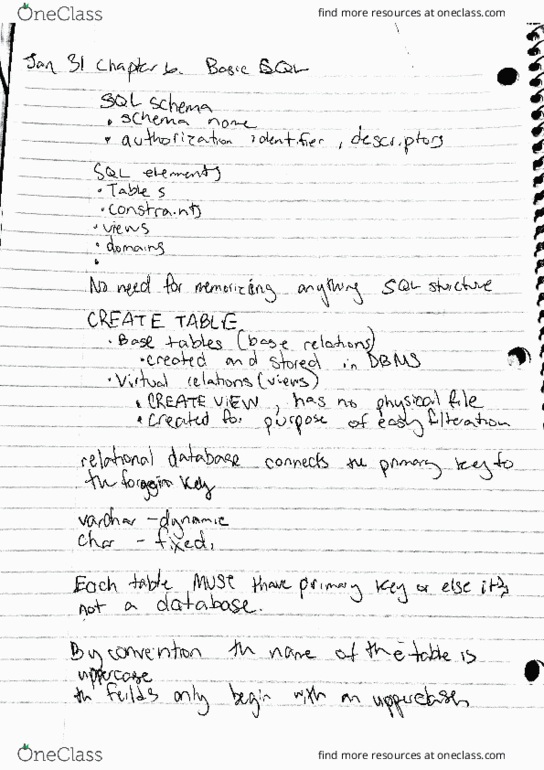 OneClass
find more resources at oneclass.com
Jan 31 Chapter 6. Basic SQL
SQL schema
• schema name
• authorization identifier, descriptors
SQL elements
• Tables
• constraints
• views
• domains
•
No need for memorizing anything SQL structure
CREATE TABLE
• Base tables (base relations)
• created and stored in DBMS
• Virtual relations (views)
• CREATE VIEW, has no physical file
• created for purpose of easy filteration
relational database connects the primary key to
the key
varchar - dynamic
char - fixed,
Each table MUST have primary key or else it's
not a database.
By convention th name of the table is
uppercase
th feilds only begin with an
OneClass
find more resources at oneclass.com